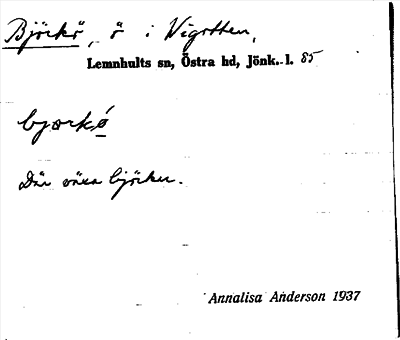 Björkö, ö i Vigotten,
Lemnhults sn, Östra hd, Jönk. l. 85
bjærkó
Där växa björkar.
Annalisa Anderson 1937